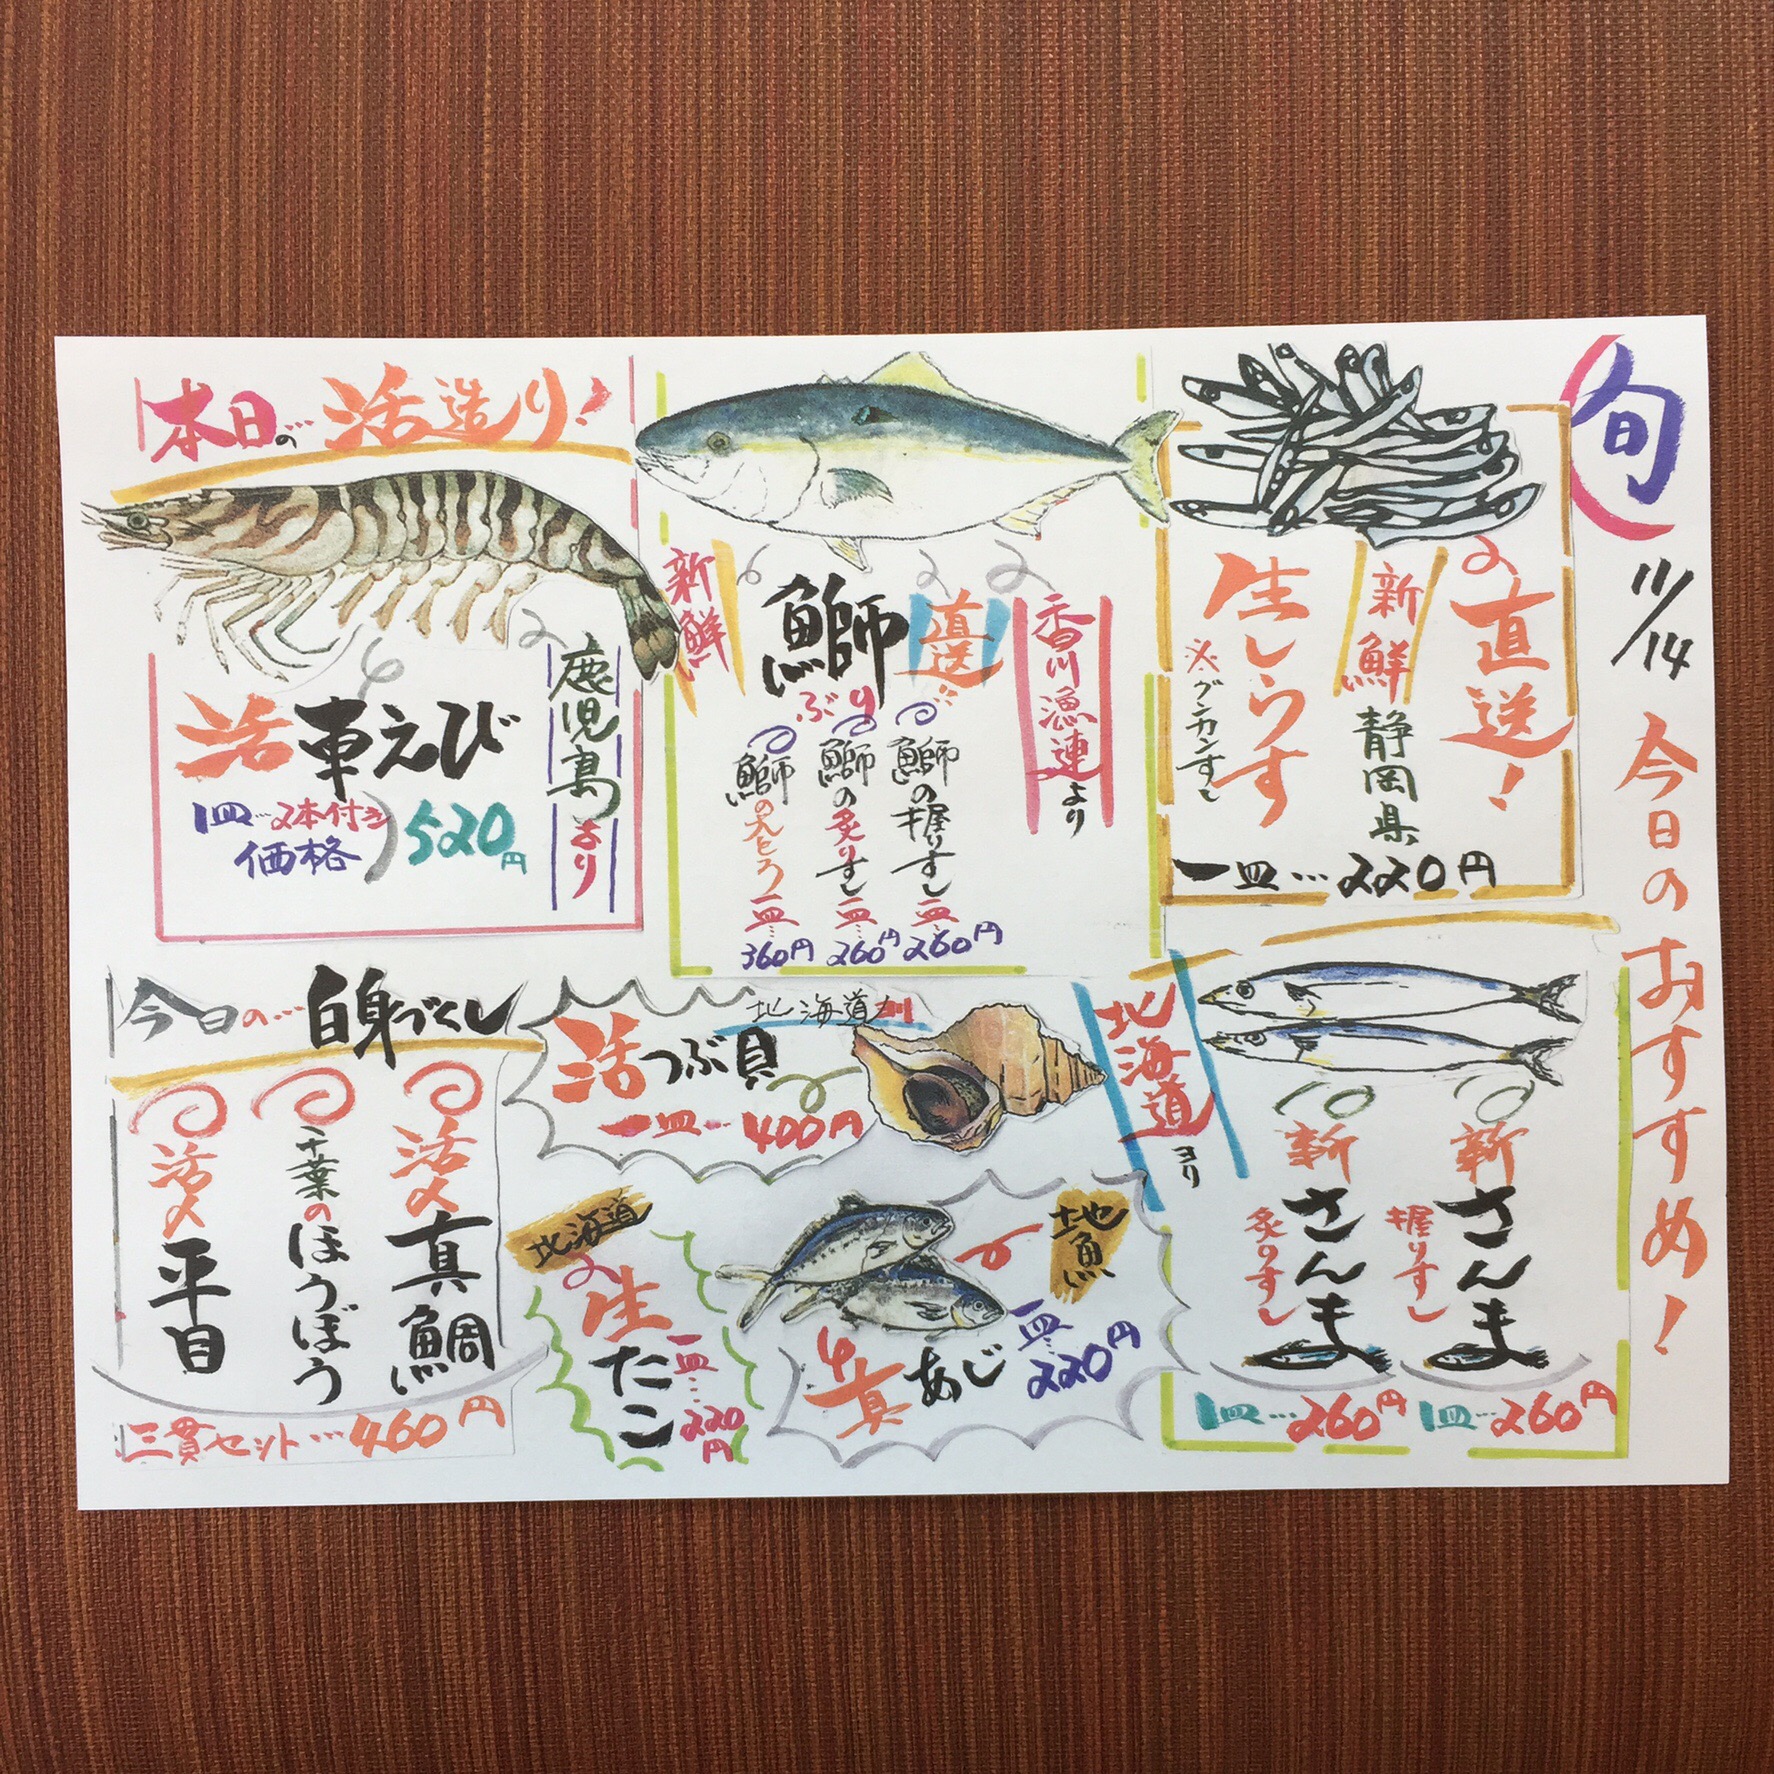 旬
11/14
今日のおすすめ!
直送!
新鮮
静岡県
生しらす
※グンカンすし
一皿…220円
香川漁連より
直送!!
鰤
ぶり
新鮮
鰤の握りすし一皿…260円
鰤の炙りすし一皿…260円
鰤の大とろ一皿…360円
本日の…活造り!
鹿児島より
活車えび
1皿…2本付き
価格
520円
北海道ヨリ
新さんま
握りすし
1皿…260円
新さんま
炙りすし
1皿…260円
北海道カラ
活つぶ貝
一皿…400円
地魚
真あじ
一皿…220円
北海道
生たこ
一皿…220円
今日の…白身づくし
活〆真鯛
千葉のほうぼう
活〆平目
三貫セット…460円